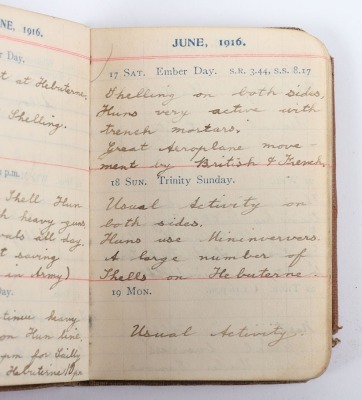 NE, 1916.
ber Day.
t at Hebuterne,
Shelling.
p.m.
Shell Hun
h heavy guns
vals all day
t saving
in Army)
Day.
tinue heavy
on Hun line,
pm for
Hebuterne
JUNE, 1916.
17 SAT. Ember Day. S.R. 3.44, S.S. 8.17
Shelling on both sides,
Huns very active with
trench mortars.
Great Aeroplane move-
ment by British & French.
18 SUN. Trinity Sunday.
Usual Activity on
both sides.
Huns use Mininververs.
A large number of
Shells on Hebuterne.
19 MON.
Usual Activity.